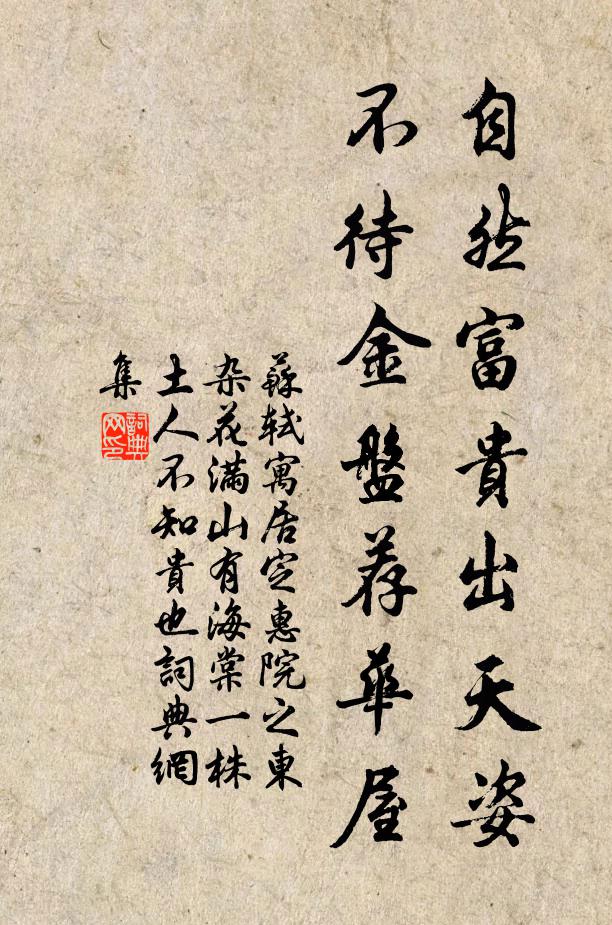 自然富貴出天姿
不待金盤荐華屋
蘇軾寓居定惠院之東
杂花滿山有海棠一株
土人不知貴也詞典網
集
詞典
网印